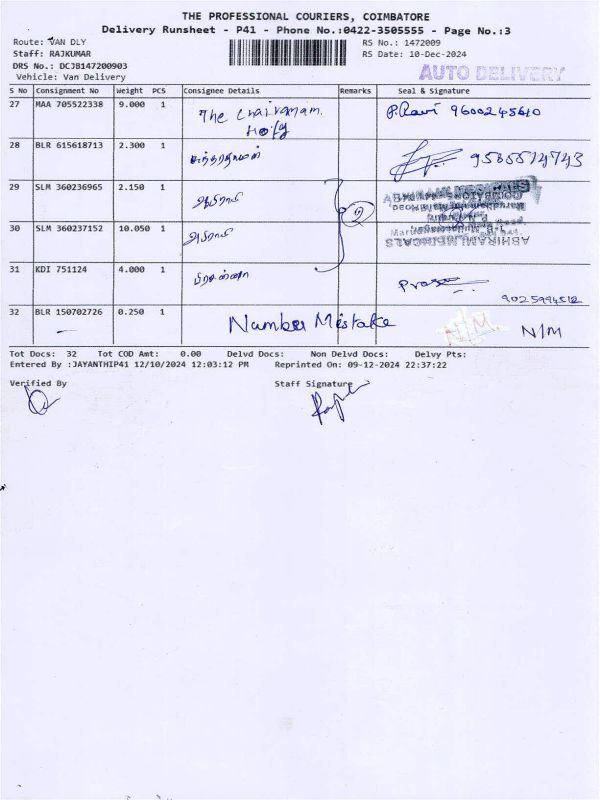 THE PROFESSIONAL COURIERS, COIMBATORE
Delivery Runsheet - P41 - Phone No.:0422-3505555 - Page No.:3
Route: VAN DLY RS No.: 1472009
Staff: RAJKUMAR RS Date: 10-Dec-2024
DRS No.: DCJB147200903
Vehicle: Van Delivery AUTO DELIVERY
S No Consignment No Weight PCS Consignee Details Remarks Seal & Signature
27 MAA 705522338 9.000 1 The Chairamam. P.Ravi 9600245610
28 BLR 615618713 2.300 1
29 SLM 360236965 2.150 1 அபிராமி
2
30 SLM 360237152 10.050 1 அபிராமி
ABHIRAMI MEDICALS
31 KDI 751124 4.000 1 பிரசன்னா
32 BLR 150702726 0.250 1 Number Mistake N/M. N/M
Tot Docs: 32 Tot COD Amt: 0.00 Delvd Docs: Non Delvd Docs: Delvy Pts:
Entered By :JAYANTHIP41 12/10/2024 12:03:12 PM Reprinted On: 09-12-2024 22:37:22
Verified By Staff Signature